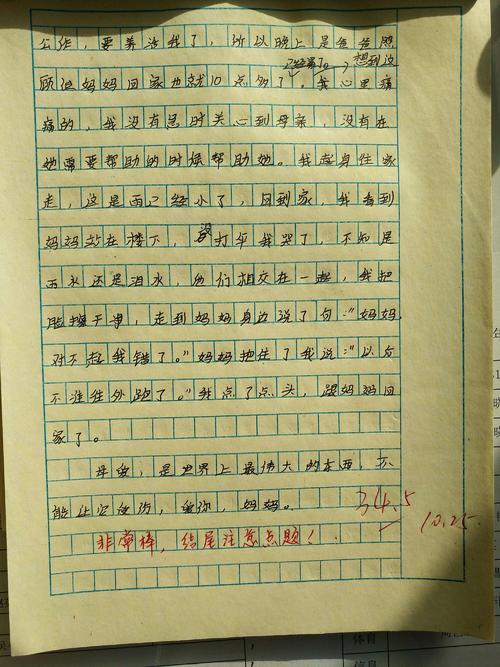 工作，要养活我了，所以晚上是爸爸照
已经累了。，想到这
顾但妈妈回家也就10点多了。我心里痛
痛的，我没有急时关心到母亲，没有在
她需要帮助的时候帮助她。我起身往家
走，这是雨已经小了，回到家，我看到
妈妈站在楼下，没打伞我哭了，不知是
雨水还是泪水，他们相交在一起，我把
脸擦干净，走到妈妈身边说了句："妈妈
对不起我错了。"妈妈抱住了我说："以后
不准往外跑了。"我点了点头，跟妈妈回
家了。
母爱，是世界上最伟大的东西，不
能让它受伤，爱你，妈妈。
34.5
10.25
非常棒，结尾注意点题！
体育
信息